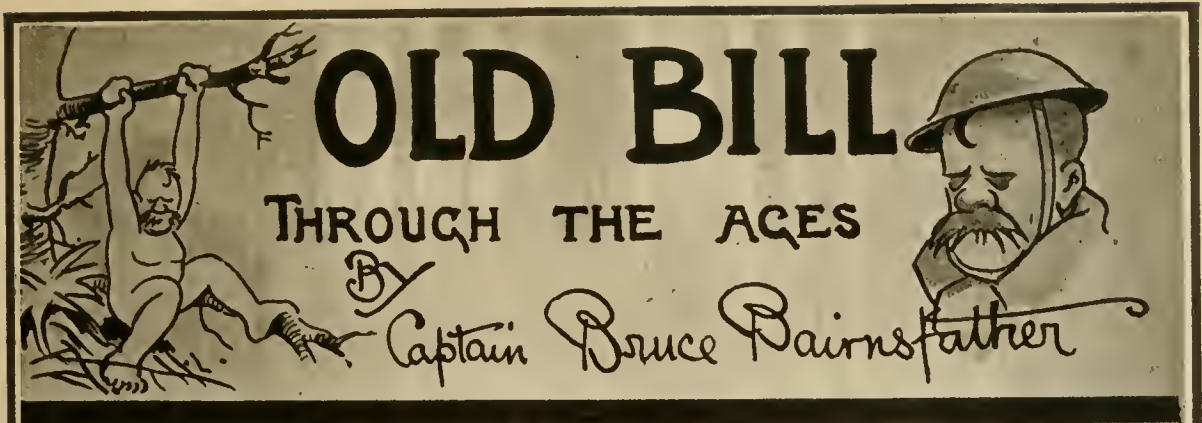 OLD BILL
THROUGH THE AGES
By
Captain Bruce Bairnsfather